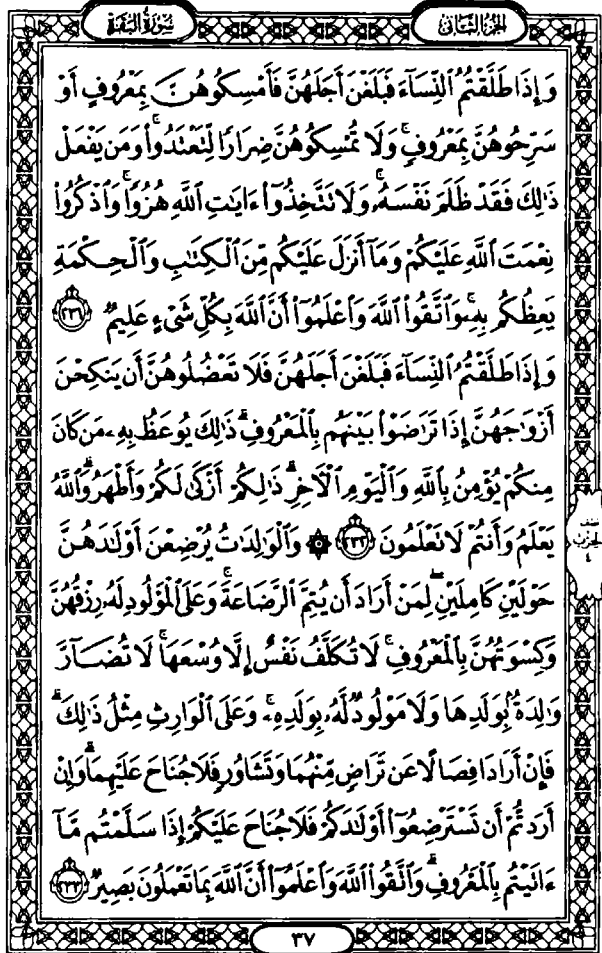 سُورَةُ البَقَرَةِ
الجُزْءُ الثَّانِي
وَإِذَا طَلَّقْتُمُ ٱلنِّسَآءَ فَبَلَغْنَ أَجَلَهُنَّ فَأَمْسِكُوهُنَّ بِمَعْرُوفٍ أَوْ
سَرِّحُوهُنَّ بِمَعْرُوفٍ ۚ وَلَا تُمْسِكُوهُنَّ ضِرَارًا لِّتَعْتَدُوا۟ ۚ وَمَن يَفْعَلْ
ذَٰلِكَ فَقَدْ ظَلَمَ نَفْسَهُۥ ۚ وَلَا تَتَّخِذُوٓا۟ ءَايَٰتِ ٱللَّهِ هُزُوًا ۚ وَٱذْكُرُوا۟
نِعْمَتَ ٱللَّهِ عَلَيْكُمْ وَمَآ أَنزَلَ عَلَيْكُم مِّنَ ٱلْكِتَٰبِ وَٱلْحِكْمَةِ
يَعِظُكُم بِهِۦ ۚ وَٱتَّقُوا۟ ٱللَّهَ وَٱعْلَمُوٓا۟ أَنَّ ٱللَّهَ بِكُلِّ شَىْءٍ عَلِيمٌ ٢٣١
وَإِذَا طَلَّقْتُمُ ٱلنِّسَآءَ فَبَلَغْنَ أَجَلَهُنَّ فَلَا تَعْضُلُوهُنَّ أَن يَنكِحْنَ
أَزْوَٰجَهُنَّ إِذَا تَرَٰضَوْا۟ بَيْنَهُم بِٱلْمَعْرُوفِ ۗ ذَٰلِكَ يُوعَظُ بِهِۦ مَن كَانَ
مِنكُمْ يُؤْمِنُ بِٱللَّهِ وَٱلْيَوْمِ ٱلْءَاخِرِ ۗ ذَٰلِكُمْ أَزْكَىٰ لَكُمْ وَأَطْهَرُ ۗ وَٱللَّهُ
يَعْلَمُ وَأَنتُمْ لَا تَعْلَمُونَ ٢٣٢ ۞ وَٱلْوَٰلِدَٰتُ يُرْضِعْنَ أَوْلَٰدَهُنَّ
نصف
الحزب
٤
حَوْلَيْنِ كَامِلَيْنِ ۖ لِمَنْ أَرَادَ أَن يُتِمَّ ٱلرَّضَاعَةَ ۚ وَعَلَى ٱلْمَوْلُودِ لَهُۥ رِزْقُهُنَّ
وَكِسْوَتُهُنَّ بِٱلْمَعْرُوفِ ۚ لَا تُكَلَّفُ نَفْسٌ إِلَّا وُسْعَهَا ۚ لَا تُضَآرَّ
وَٰلِدَةٌۢ بِوَلَدِهَا وَلَا مَوْلُودٌ لَّهُۥ بِوَلَدِهِۦ ۚ وَعَلَى ٱلْوَارِثِ مِثْلُ ذَٰلِكَ ۗ
فَإِنْ أَرَادَا فِصَالًا عَن تَرَاضٍ مِّنْهُمَا وَتَشَاوُرٍ فَلَا جُنَاحَ عَلَيْهِمَا ۗ وَإِنْ
أَرَدتُّمْ أَن تَسْتَرْضِعُوٓا۟ أَوْلَٰدَكُمْ فَلَا جُنَاحَ عَلَيْكُمْ إِذَا سَلَّمْتُم مَّآ
ءَاتَيْتُم بِٱلْمَعْرُوفِ ۗ وَٱتَّقُوا۟ ٱللَّهَ وَٱعْلَمُوٓا۟ أَنَّ ٱللَّهَ بِمَا تَعْمَلُونَ بَصِيرٌ ٢٣٣
٣٧